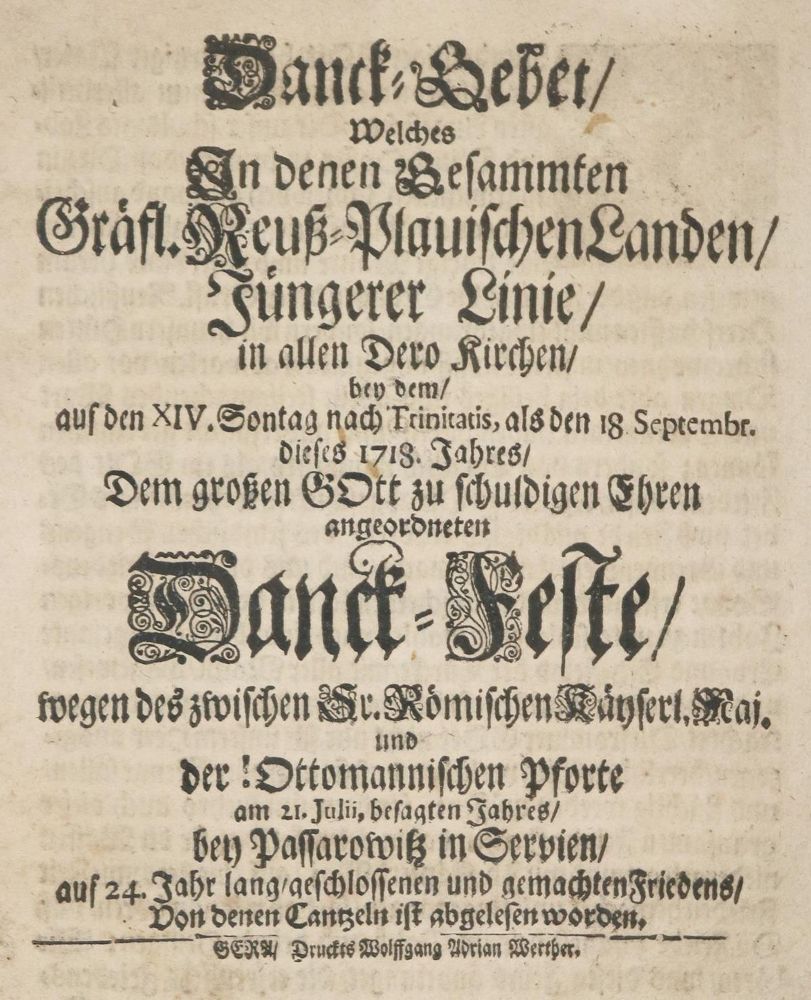 Danck-Gebet/
Welches
In denen Gesammten
Gräfl. Reuß-Plauischen Landen/
Jüngerer Linie/
in allen Dero Kirchen/
bey dem/
auf den XIV. Sontag nach Trinitatis, als den 18 Septembr.
dieses 1718. Jahres/
Dem großen GOtt zu schuldigen Ehren
angeordneten
Danck-Feste/
wegen des zwischen Sr. Römischen Käyserl. Maj.
und
der Ottomannischen Pforte
am 21. Julii, besagten Jahres/
bey Passarowitz in Servien/
auf 24. Jahr lang/geschlossenen und gemachten Friedens/
Von denen Cantzeln ist abgelesen worden.
GERA/ Druckts Wolffgang Adrian Werther.